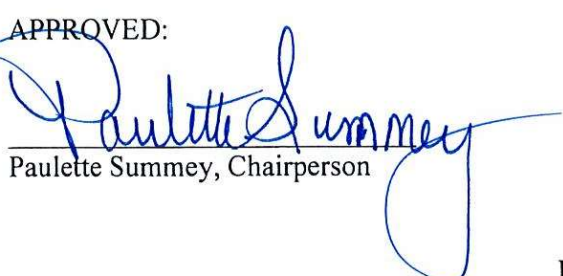 APPROVED:
Paulette Summey
Paulette Summey, Chairperson